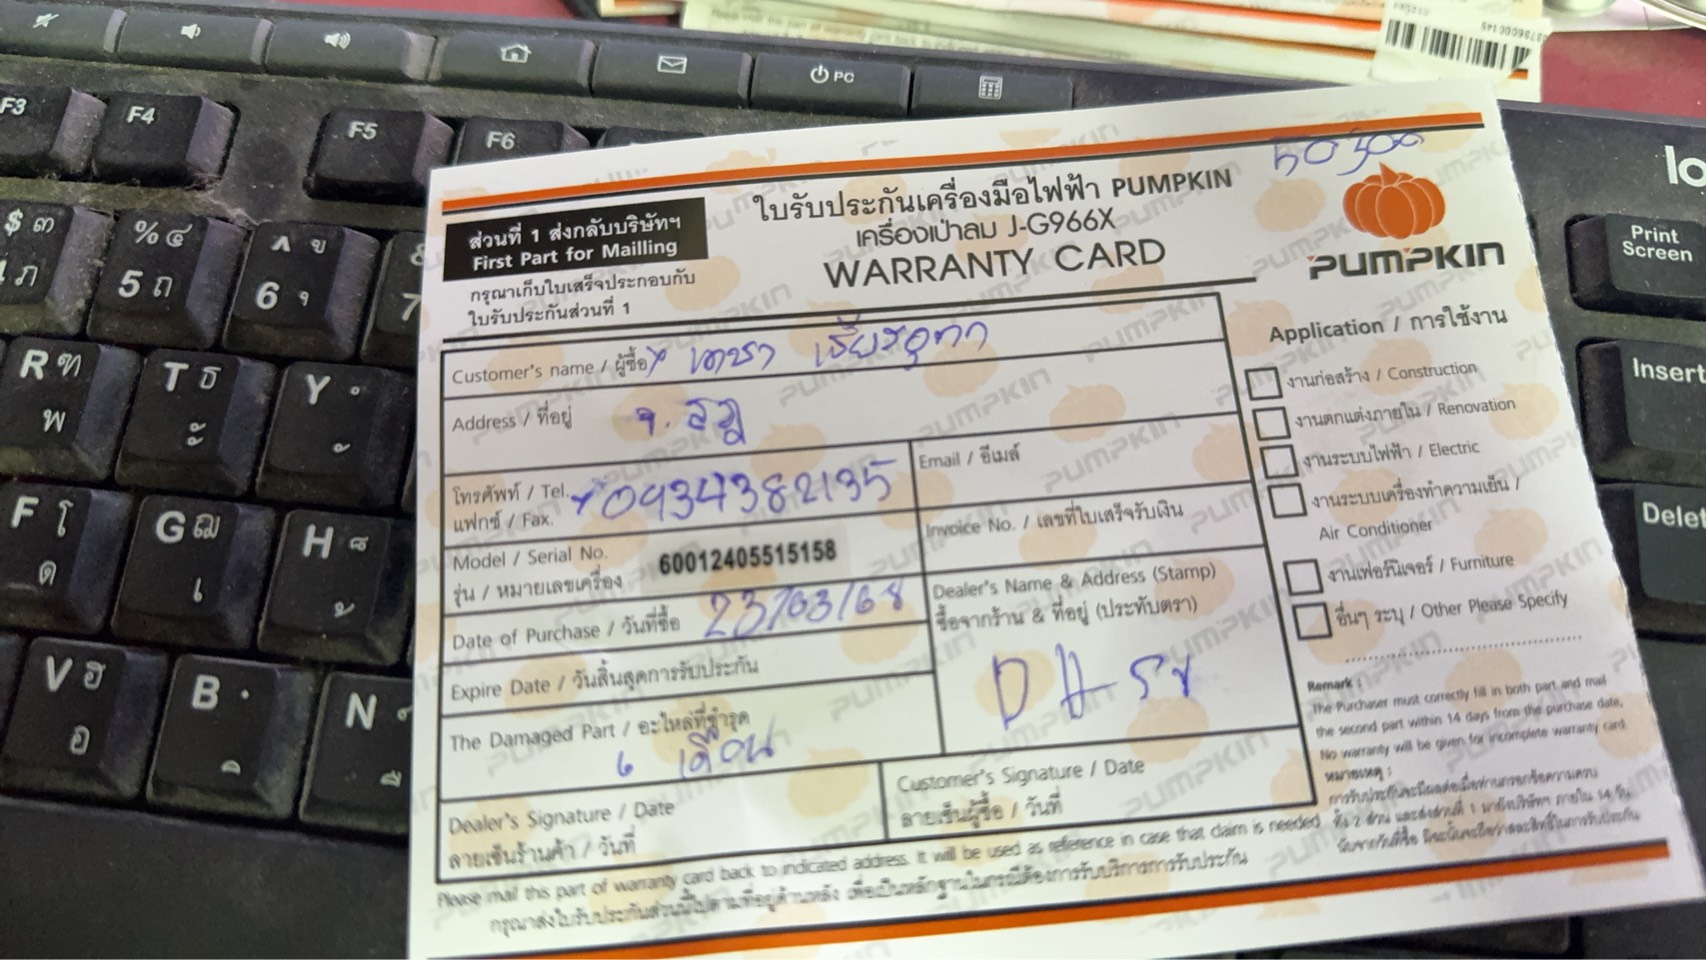 50300
ส่วนที่ 1 ส่งกลับบริษัทฯ
First Part for Mailling
กรุณาเก็บใบเสร็จประกอบกับ
ใบรับประกันส่วนที่ 1
ใบรับประกันเครื่องมือไฟฟ้า PUMPKIN
เครื่องเป่าลม J-G966X
WARRANTY CARD
PUMPKIN
Customer's name / ผู้ซื้อ
Address / ที่อยู่ จ.
โทรศัพท์ / Tel. 0934382135
แฟกซ์ / Fax.
Email / อีเมล์
Model / Serial No. 60012405515158
รุ่น / หมายเลขเครื่อง
Invoice No. / เลขที่ใบเสร็จรับเงิน
Date of Purchase / วันที่ซื้อ 23/03/68
Expire Date / วันสิ้นสุดการรับประกัน
The Damaged Part / อะไหล่ที่ชำรุด
6 เดือน
Dealer's Name & Address (Stamp)
ซื้อจากร้าน & ที่อยู่ (ประทับตรา)
DH
Dealer's Signature / Date
ลายเซ็นร้านค้า / วันที่
Customer's Signature / Date
ลายเซ็นผู้ซื้อ / วันที่
Application / การใช้งาน
งานก่อสร้าง / Construction
งานตกแต่งภายใน / Renovation
งานระบบไฟฟ้า / Electric
งานระบบเครื่องทำความเย็น /
Air Conditioner
งานเฟอร์นิเจอร์ / Furniture
อื่นๆ ระบุ / Other Please Specify
Remark :
The Purchaser must correctly fill in both part and mail
the second part within 14 days from the purchase date,
No warranty will be given for incomplete warranty card.
หมายเหตุ :
การรับประกันจะมีผลต่อเมื่อท่านกรอกข้อความครบ
ทั้ง 2 ส่วน และส่งส่วนที่ 1 มายังบริษัทฯ ภายใน 14 วัน
นับจากวันที่ซื้อ มิฉะนั้นจะถือว่าสละสิทธิ์ในการรับประกัน
Please mail this part of warranty card back to indicated address. It will be used as reference in case that claim is needed.
กรุณาส่งใบรับประกันส่วนนี้ไปตามที่อยู่ด้านหลัง เพื่อเป็นหลักฐานในกรณีต้องการรับบริการการรับประกัน
PC
F3
F4
F5
F6
Print
Screen
Insert
$ ๓
4 ภ
% ๔
5 ถ
6
7
R ฑ
พ
T ธ
Y
F โ
ด
G ฌ
เ
H
V ฮ
อ
B
N